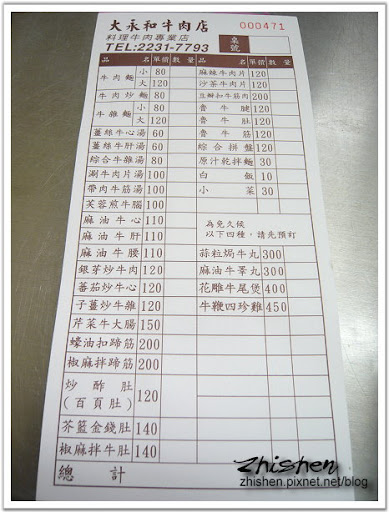 大永和牛肉店
料理牛肉專業店
TEL:2231-7793
桌號
000471
品名 單價 數量
牛肉麵 小 80
大 120
牛肉炒麵 80
牛雜麵 小 80
大 120
薑絲牛心湯 60
薑絲牛肝湯 60
綜合牛雜湯 80
涮牛肉片湯 100
帶肉牛筋湯 100
芙蓉煎牛腦 100
麻油牛心 110
麻油牛肝 110
麻油牛腰 110
銀芽炒牛肉 120
蕃茄炒牛心 120
子薑炒牛雜 120
芹菜牛大腸 150
蠔油扣蹄筋 200
椒麻拌蹄筋 200
炒酢肚
(百頁肚) 120
芥籃金錢肚 140
椒麻拌牛肚 140
總計
品名 單價 數量
麻辣牛肉片 120
沙茶牛肉片 120
豆瓣扣牛筋肉 200
魯牛腱 120
魯牛肚 120
魯牛筋 120
綜合拼盤 120
原汁乾拌麵 30
白飯 10
小菜 30
為免久候
以下四種,請先預訂
蒜粒焗牛丸 300
麻油牛睪丸 300
花雕牛尾煲 400
牛鞭四珍雞 450
Zhishen
zhishen.pixnet.net/blog